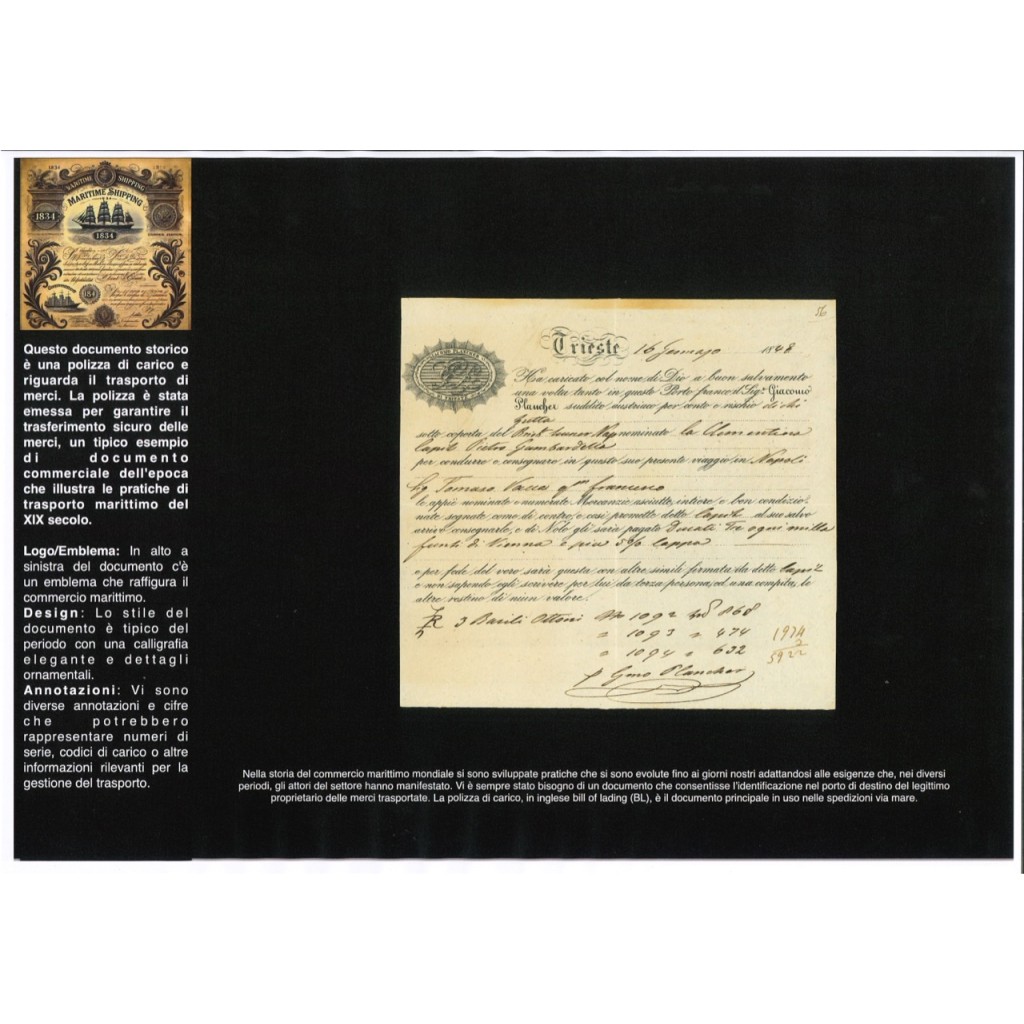 MARITIME SHIPPING
MARITIME SHIPPING
1834
1834
Questo documento storico
è una polizza di carico e
riguarda il trasporto di
merci. La polizza è stata
emessa per garantire il
trasferimento sicuro delle
merci, un tipico esempio
di documento
commerciale dell'epoca
che illustra le pratiche di
trasporto marittimo del
XIX secolo.
Logo/Emblema: In alto a
sinistra del documento c'è
un emblema che raffigura il
commercio marittimo.
Design: Lo stile del
documento è tipico del
periodo con una calligrafia
elegante e dettagli
ornamentali.
Annotazioni: Vi sono
diverse annotazioni e cifre
che potrebbero
rappresentare numeri di
serie, codici di carico o altre
informazioni rilevanti per la
gestione del trasporto.
56
Trieste 16 Gennajo 1848
Ha caricato col nome di Dio a buon salvamento
una volta tanto in questo Porto franco il Sigr. Giacomo
Plancher suddito austriaco per conto e rischio di chi
spetta
sotto coperta del nominato la Clementina
Capit. Pietro Gambardella
per condurre e consegnare in questo suo presente viaggio in Napoli
Sig Tomaso Vacca qm Francesco
le appiè nominate e numerate Mercanzie asciutte, intiere e ben condizio-
nate segnate come di contro, e così promette detto Capit. al suo salvo
arrivo consegnarle, e di Nolo gli sarà pagato Ducati Tre ogni mille
funti di Vienna e più 5% Cappa
e per fede del vero sarà questa con altre simili firmata da detto Capit.
e non sapendo egli scrivere per lui da terza persona, ed una compita, le
altre restino di niun valore.
3 Barili Ottoni No 1092 868
" 1093 " 474
" 1094 " 632
1974
3
5922
p Gmo Plancher
Nella storia del commercio marittimo mondiale si sono sviluppate pratiche che si sono evolute fino ai giorni nostri adattandosi alle esigenze che, nei diversi
periodi, gli attori del settore hanno manifestato. Vi è sempre stato bisogno di un documento che consentisse l'identificazione nel porto di destino del legittimo
proprietario delle merci trasportate. La polizza di carico, in inglese bill of lading (BL), è il documento principale in uso nelle spedizioni via mare.